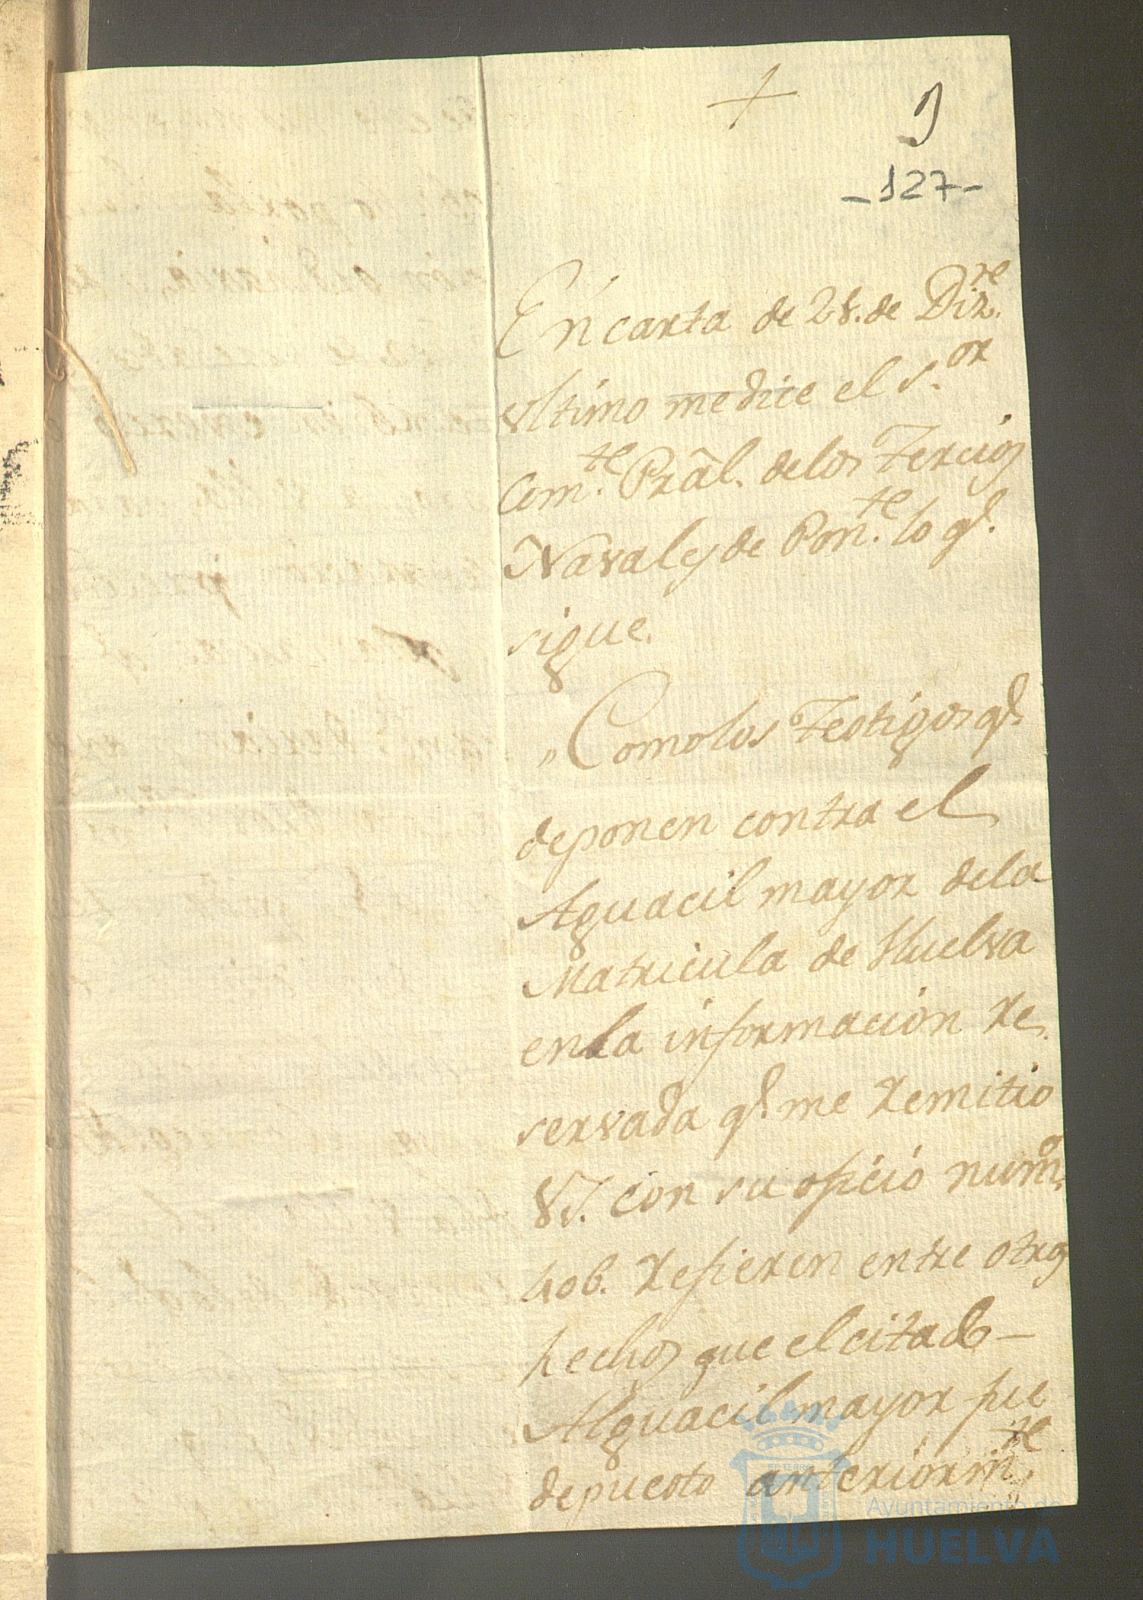 +
9
-127-
En carta de 28. de Diz.re
vltimo me dice el s.or
Com.te Pral. delos Tercios
Navales de Pon.te lo q.e
sigue.
" Como los Testigos q.e
deponen contra el
Aguacil mayor dela
Matricula de Huelva
en la informacion re
servada q.e me remitio
VS. con su oficio num.o
406. refieren entre otros
hechos que el citado —
Alguacil mayor fue
depuesto anteriorm.te
Ayuntamiento de
HUELVA